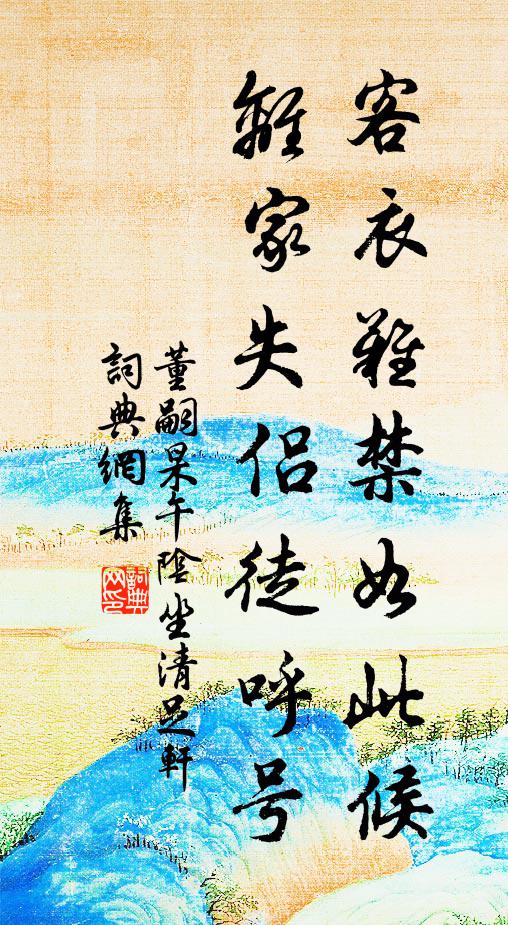 客衣難禁如此候
離家失侶徒呼号
董嗣杲午陰坐清足軒
詞典網集
詞典网印